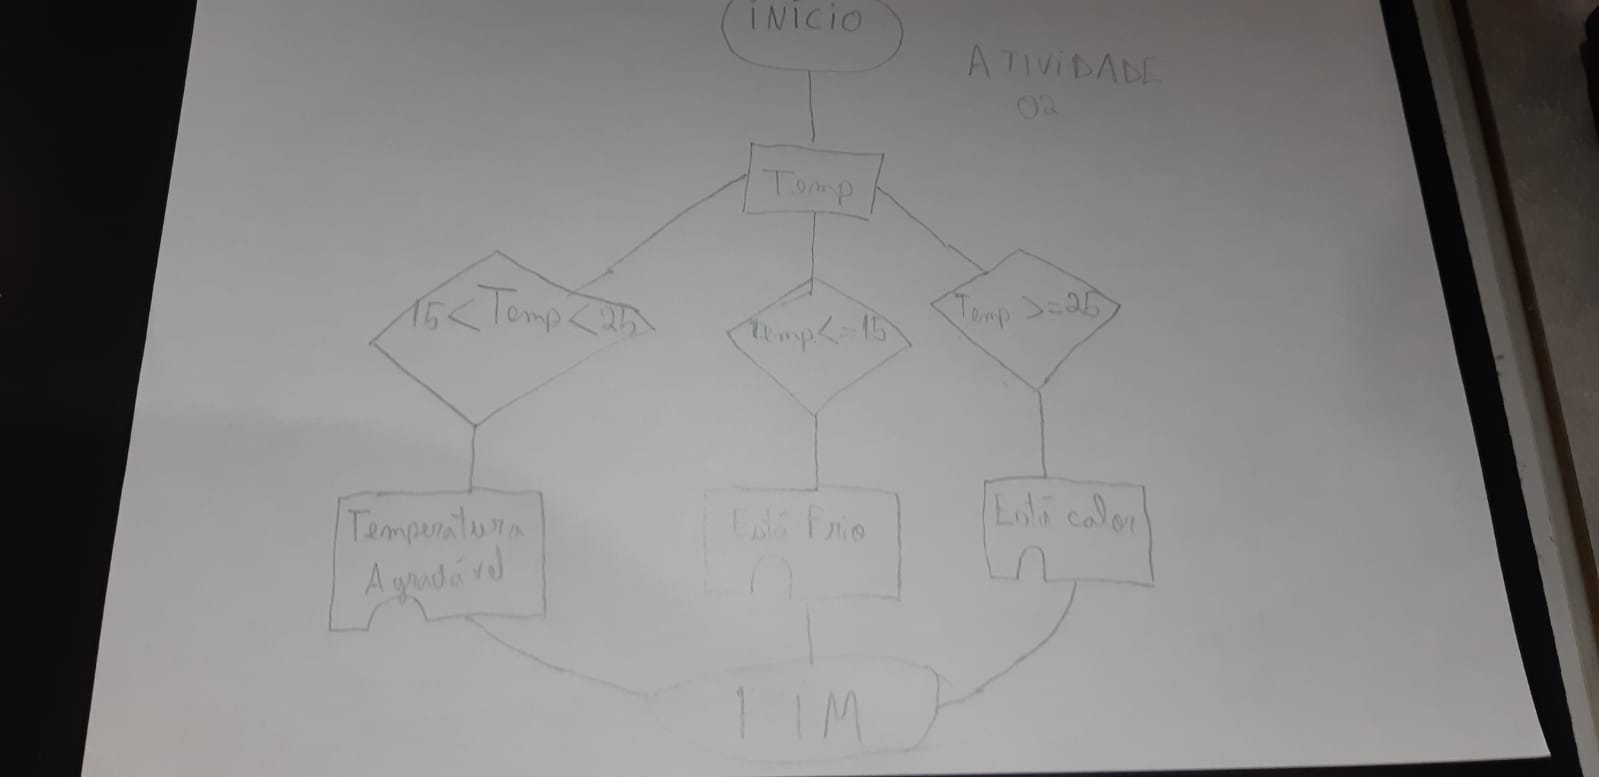 INÍCIO
ATIVIDADE
02
Temp
15 < Temp < 25
Temp <= 15
Temp >= 25
Temperatura
Agradável
Está Frio
Está calor
FIM